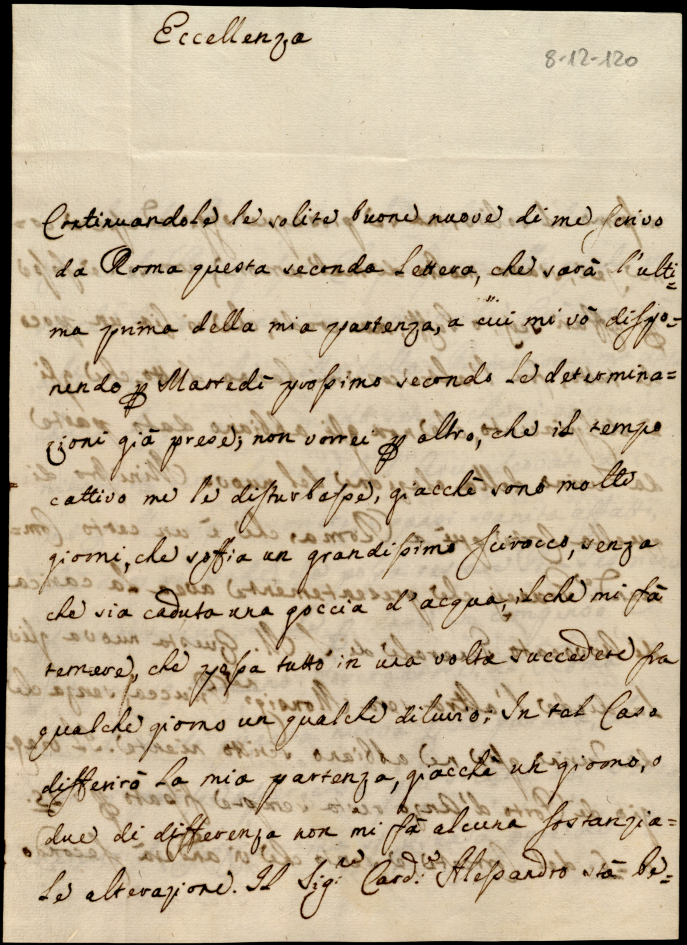 Eccellenza
8-12-120
Continuandole le solite buone nuove di me scrivo
da Roma questa seconda Lettera, che sarà l'ulti=
ma prima della mia partenza, a cui mi vò dispo=
nendo ꝑ Martedì prossimo secondo le determina=
zioni già prese; non vorrei ꝑ altro, che il tempo
cattivo me le disturbasse, giacchè sono molti
giorni, che soffia un grandissimo scirocco, senza
che sia caduta una goccia d'acqua, il che mi fà
temere, che possa tutto in una volta succedere fra
qualche giorno un qualche diluvio; In tal Caso
differirò la mia partenza, giacchè un giorno, o
due di differenza non mi fà alcuna sostanzia=
le alterazione. Il Sig.re Card.e Alessandro stà be=